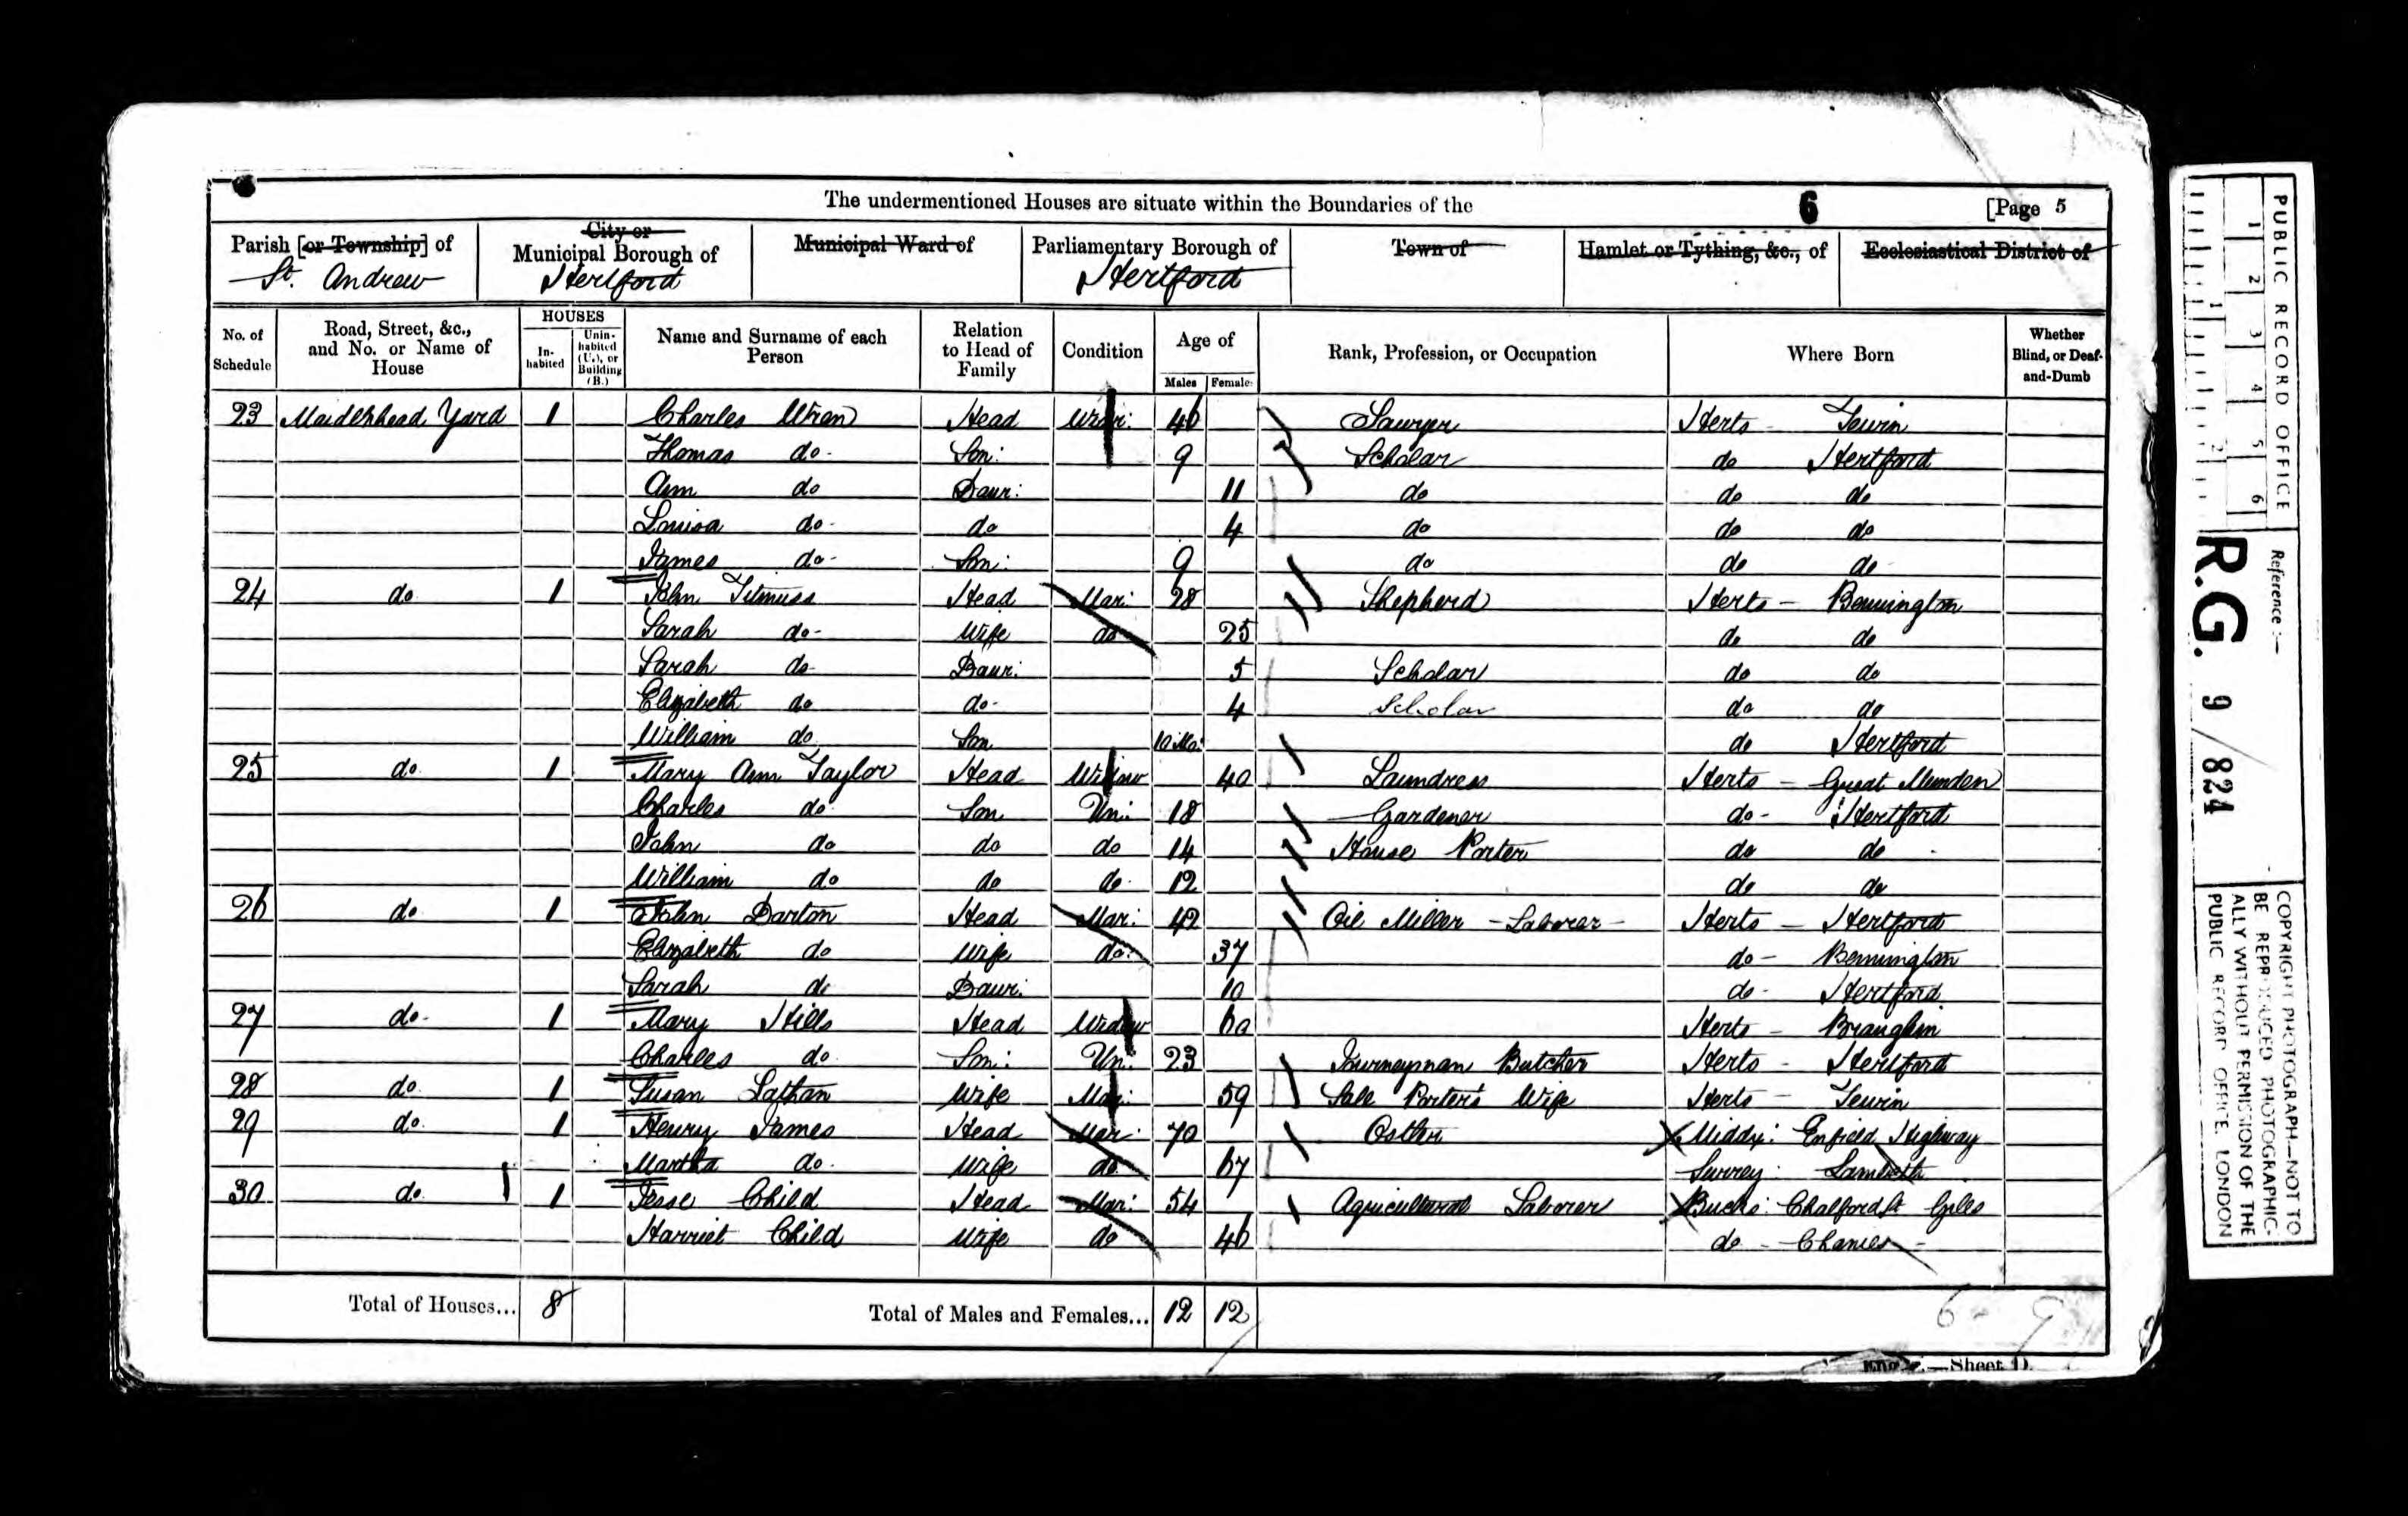 The undermentioned Houses are situate within the Boundaries of the 6 [Page 5
Parish [or Township] of St. Andrew
City or Municipal Borough of Hertford
Municipal Ward of
Parliamentary Borough of Hertford
Town of
Hamlet or Tything, &c., of
Ecclesiastical District of
No. of Schedule
Road, Street, &c., and No. or Name of House
HOUSES
In-habited
Unin-habited (U.), or Building (B.)
Name and Surname of each Person
Relation to Head of Family
Condition
Age of
Males
Females
Rank, Profession, or Occupation
Where Born
Whether Blind, or Deaf-and-Dumb
23 Maidenhead Yard 1 Charles Wren Head 46 Sawyer Herts - Tewin
Thomas do- Son: 9 Scholar do Hertford
Ann do Daur: 11 do do do
Louisa do- do 4 do do do
James do- Son: 9 do do do-
24 do 1 John Titmuss Head Mar: 28 Shepherd Herts - Bennington
Sarah do- Wife do 25 do do
Sarah do- Daur: 5 Scholar do do
Elizabeth do do- 4 Scholar do do
William do Son 10 Mo: do Hertford
25 do 1 Mary Ann Taylor Head Widow 40 Laundress Herts - Great Munden
Charles do Son Un: 18 Gardener do- Hertford
John do do do 14 House Porter do do
William do do do 12 do do
26 do 1 John Darton Head Mar: 42 Oil Miller - Laborer - Herts - Hertford
Elizabeth do Wife do: 37 do- Bennington
Sarah do Daur: 10 do- Hertford
27 do- 1 Mary Hills Head Widow 60 Herts - Braughin
Charles do Son: Un: 23 Journeyman Butcher Herts - Hertford
28 do 1 Susan Lathan Wife Mar: 59 Porter's Wife Herts - Tewin
29 do 1 Henry James Head Mar: 70 Ostler Middx: Enfield Highway
Martha do Wife do 67 Surrey: Lambeth
30 do 1 Jesse Child Head Mar: 54 Agricultural Laborer Bucks: Chalford St Giles
Harriet Child Wife do 46 do -
Total of Houses... 8 Total of Males and Females... 12 12
6 - 9
—Sheet D.
PUBLIC RECORD OFFICE
1 2 3 4 5 6
1 2
Reference :—
R.G. 9 / 824
COPYRIGHT PHOTOGRAPH—NOT TO
BE REPRODUCED PHOTOGRAPHIC-
ALLY WITHOUT PERMISSION OF THE
PUBLIC RECORD OFFICE, LONDON